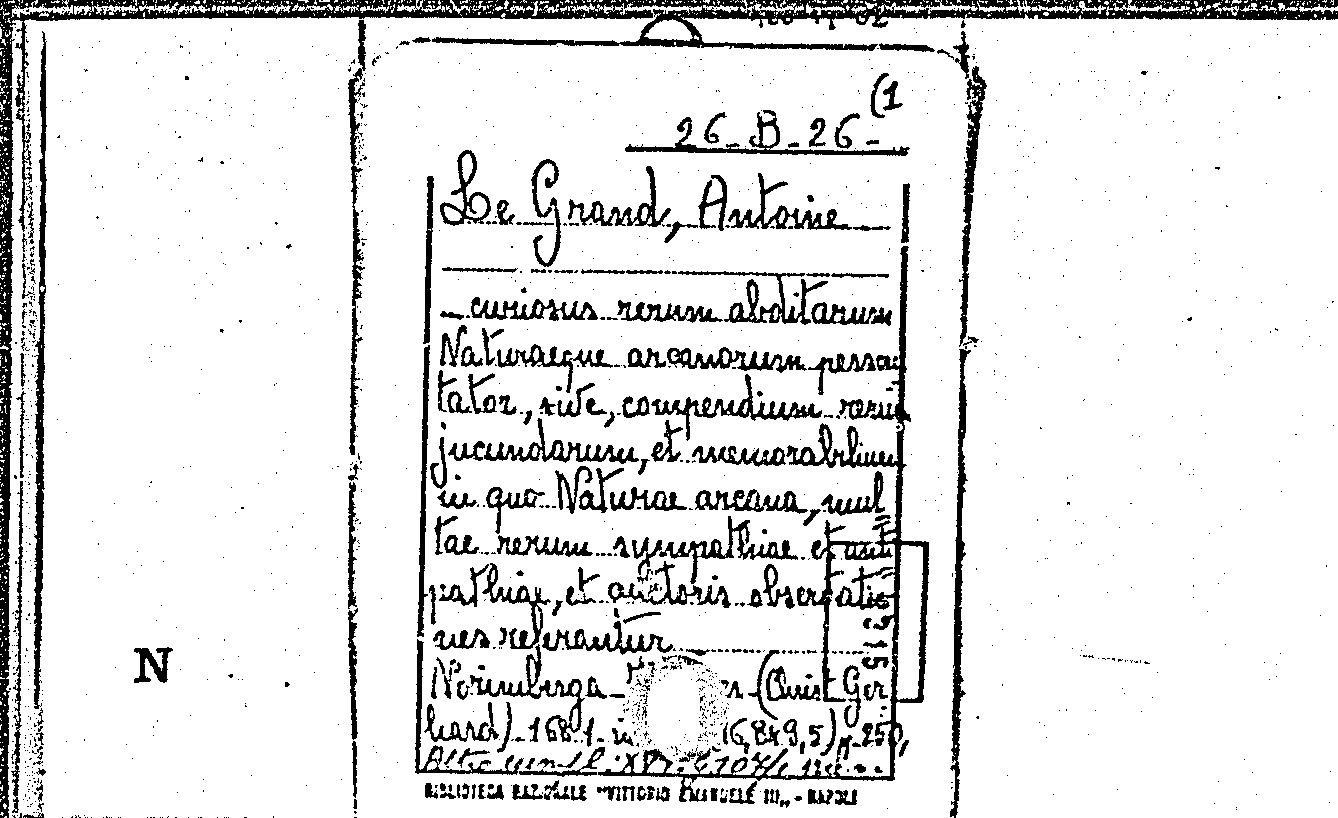 (1
26-B-26-
Le Grand, Antoine
- curiosus rerum abditarum
Naturaeque arcanorum perscru
tator, sive, compendium rerum
jucundarum, et memorabilium
in quo Naturae arcana, mul
tae rerum sympathiae et anti
pathiae, et auctoris observatio
nes referantur
N
Norimberga - (Christ Ger
hard) - 1681 - in (16,8x9,5) p. 250,
BIBLIOTECA NAZIONALE "VITTORIO EMANUELE III" - NAPOLI